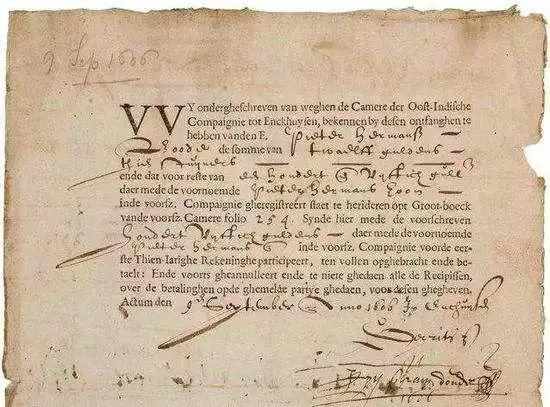 9 Sep 1606
VVY ondergheschreven van weghen de Camere der Oost-Indische
Compaignie tot Enckhuysen, bekennen by desen ontfanghen te
hebben vanden E. Pieter Hermansz
de somme van twaelff guldens
thien stuyvers
ende dat voor reste van een hondert vyftich
daer mede de voornoemde Pieter Hermans
inde voorsz. Compaignie gheregistreert staet te herideren opt Groot-boeck
vande voorsz. Camere folio 254. Synde hier mede de voorschreven
hondert vyftich guldens daer mede de voornoemde
Pieter Hermans inde voorsz. Compaignie voorde eer-
ste Thien-Iarighe Rekeninghe participeert, ten vollen opghebracht ende be-
taelt: Ende voorts gheannulleert ende te niete ghedaen alle de Recipissen,
over de betalinghen opde ghemelde partye ghedaen, voor desen ghegheven.
Actum den 9 September Anno 1606